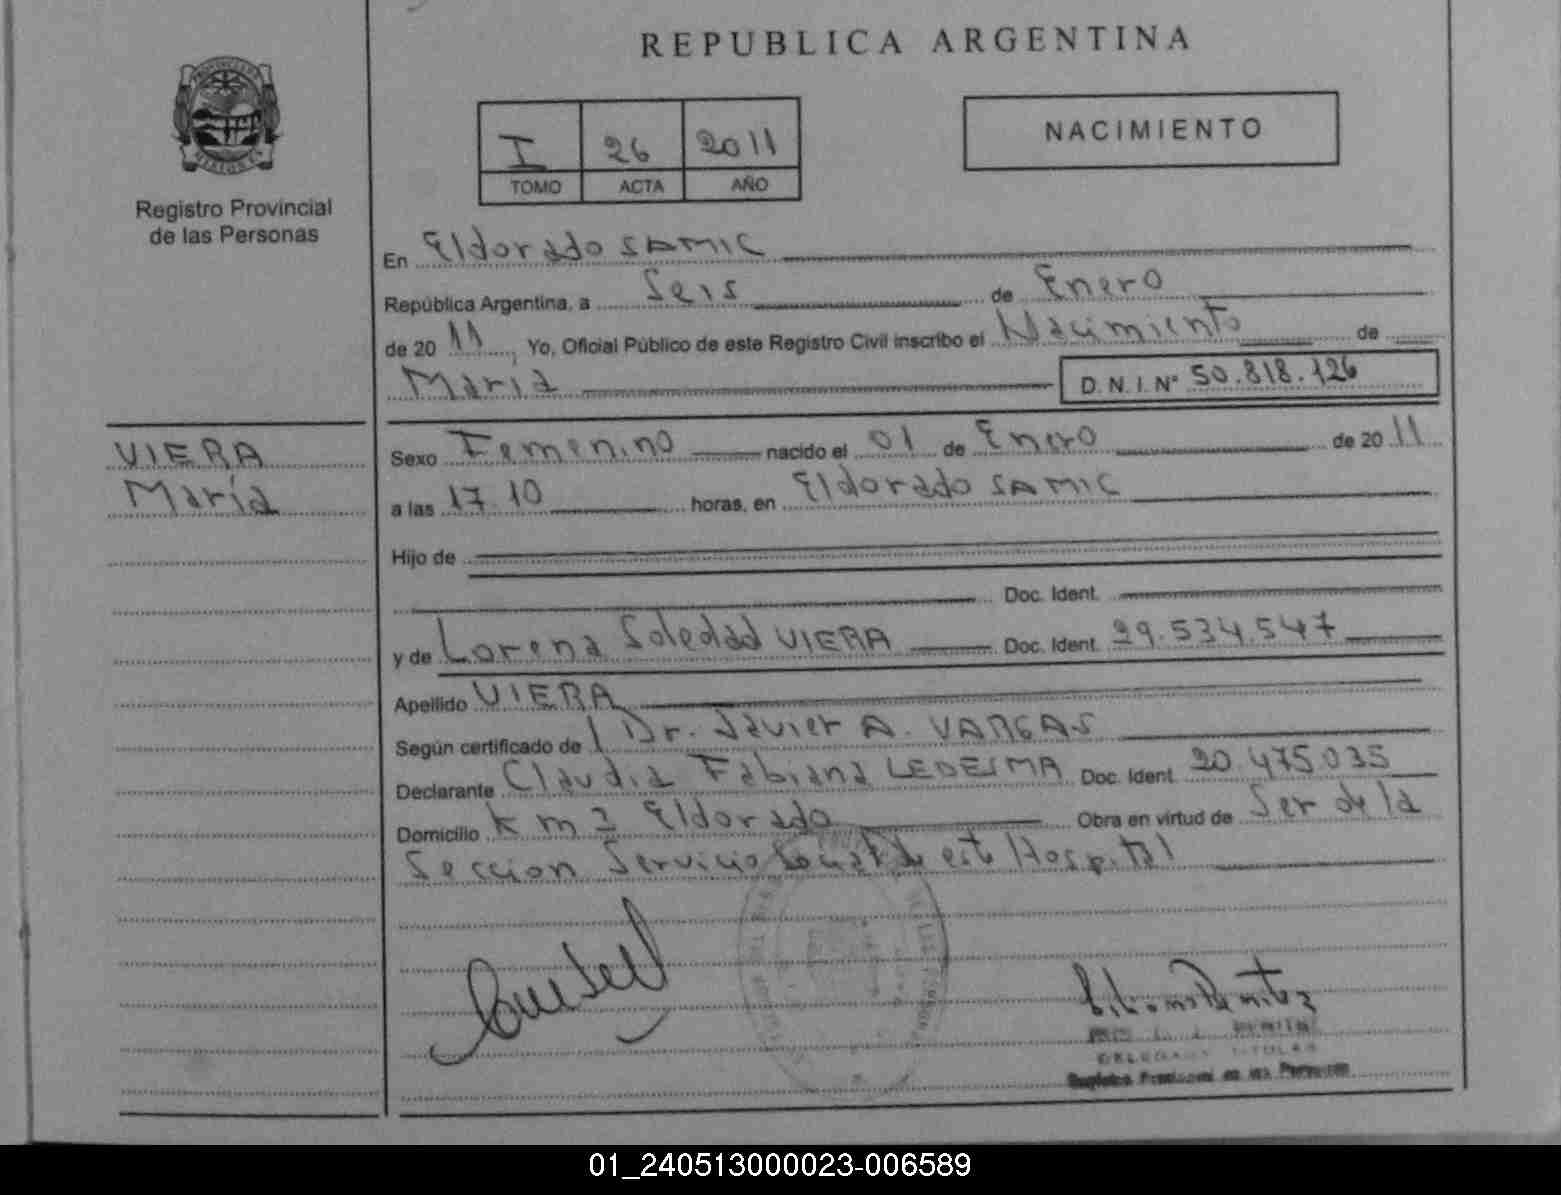 REPUBLICA ARGENTINA
PROVINCIA DE MISIONES
Registro Provincial
de las Personas
I 26 2011
TOMO ACTA AÑO
NACIMIENTO
En Eldorado SAMIC
República Argentina, a Seis de Enero
de 2011, Yo, Oficial Público de este Registro Civil inscribo el Nacimiento de
María D.N.I. Nº 50.818.126
VIERA
María
Sexo Femenino nacido el 01 de Enero de 2011
a las 17.10 horas, en Eldorado SAMIC
Hijo de
Doc. Ident.
y de Lorena Soledad VIERA Doc. Ident. 29.534.547
Apellido VIERA
Según certificado de Dr. Javier A. VARGAS
Declarante Claudia Fabiana LEDESMA Doc. Ident. 20.475.035
Domicilio Km 2 Eldorado Obra en virtud de Ser de la
Seccion Servicio Social de este Hospital
Registro Provincial de las Personas
01_240513000023-006589